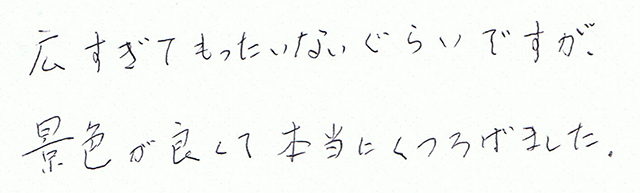 広すぎてもったいないぐらいですが、
景色が良くて本当にくつろげました。